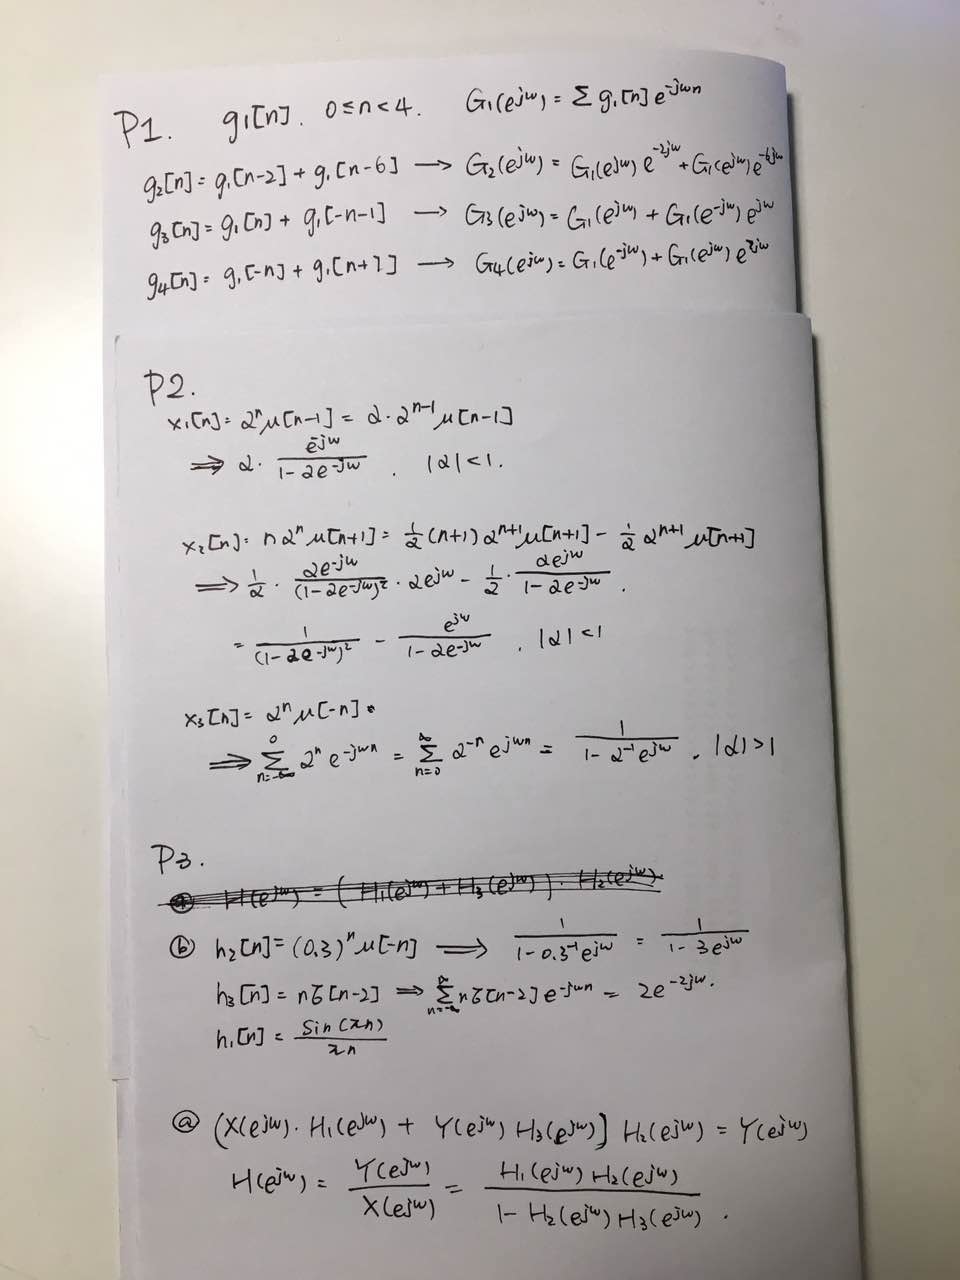 P1. g₁[n]. 0≤n<4. G₁(e^jw) = Σ g₁[n] e^-jwn
g₂[n] = g₁[n-2] + g₁[n-6] → G₂(e^jw) = G₁(e^jw) e^-2jw + G₁(e^jw) e^-6jw
g₃[n] = g₁[n] + g₁[-n-1] → G₃(e^jw) = G₁(e^jw) + G₁(e^-jw) e^jw
g₄[n] = g₁[-n] + g₁[n+2] → G₄(e^jw) = G₁(e^-jw) + G₁(e^jw) e^2jw
P2.
x₁[n] = α^n μ[n-1] = α · α^(n-1) μ[n-1]
⇒ α · e^-jw / (1 - αe^-jw) . |α| < 1.
x₂[n] = nα^n μ[n+1] = 1/α (n+1) α^(n+1) μ[n+1] - 1/α α^(n+1) μ[n+1]
⇒ 1/α · αe^-jw / (1-αe^-jw)² · αe^jw - 1/α · αe^jw / (1-αe^-jw) .
= 1 / (1-αe^-jw)² - e^jw / (1-αe^-jw) . |α| < 1
x₃[n] = α^n μ[-n].
⇒ Σ_(n=-∞)^0 α^n e^-jwn = Σ_(n=0)^∞ α^-n e^jwn = 1 / (1 - α^-1 e^jw) . |α| > 1
P3.
ⓐ H(e^jw) = (H₁(e^jw) + H₃(e^jw)) · H₂(e^jw)
ⓑ h₂[n] = (0.3)^n μ[-n] ⇒ 1 / (1 - 0.3^-1 e^jw) = 1 / (1 - 3e^jw)
h₃[n] = nδ[n-2] ⇒ Σ_(n=-∞)^∞ nδ[n-2] e^-jwn = 2e^-2jw.
h₁[n] = sin(πn) / πn
ⓐ (X(e^jw) · H₁(e^jw) + Y(e^jw) H₃(e^jw)] H₂(e^jw) = Y(e^jw)
H(e^jw) = Y(e^jw) / X(e^jw) = H₁(e^jw) H₂(e^jw) / (1 - H₂(e^jw) H₃(e^jw)) .